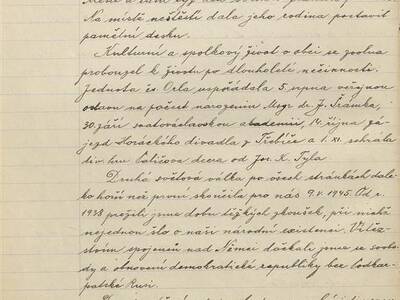 Na místě neštěstí dala jeho rodina postavit
pamětní desku.
Kulturní a spolkový život v obci se zvolna
probouzel k životu po dlouholeté nečinnosti.
Jednota čs Orla uspořádala 5. srpna veřejnou
oslavu na počest narozenin Msgr. dr. J. Šrámka,
30. září svatováclavskou akademii, 14. října zá-
jezd Horáckého divadla z Třebíče a 1. XI. sehrála
div. hru Paličova dcera od Jos. K. Tyla.
Druhá světová válka po všech stránkách dale-
ko horší než první skončila pro nás 9. V. 1945. Od r.
1938 prožili jsme dobu těžkých zkoušek, při nichž
nejednou šlo o naši národní existenci. Vítěz-
stvím spojenců nad Němci dočkali jsme se svobo-
dy a obnovení demokratické republiky bez Podkar-
patské Rusi.